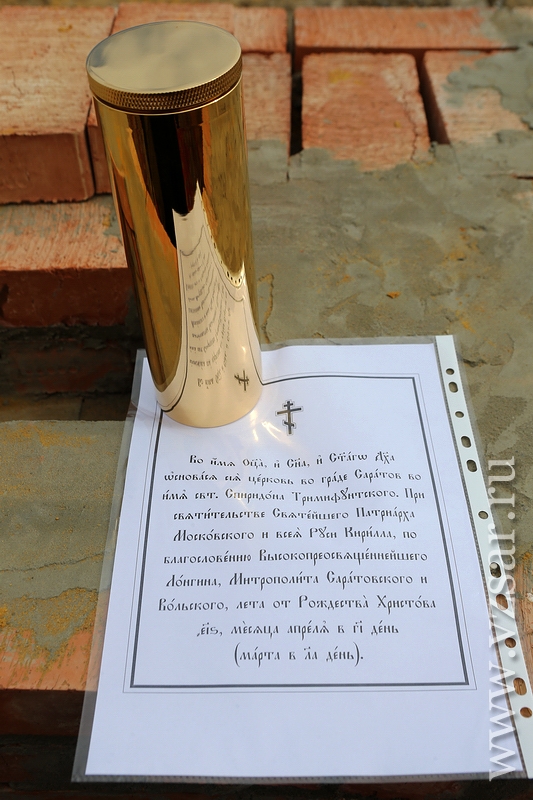 Во и҆́мѧ Ѻц҃а̀, и҆ Сн҃а, и҆ Ст҃а́гѡ Дх҃а
ѡ҆снова́сѧ сїѧ̀ це́рковь во гра́де Сара́тов во
и҆́мѧ свт. Спиридо́на Тримифꙋ́нтского. При
свѧти́тельстве Свѧте́йшего Патриа́рха
Моско́вского и всеѧ̀ Рꙋси Кири́лла, по
благослове́нию Высокопреосвѧще́ннейшего
Ло́нгина, Митрополи́та Сара́товского и
Во́льского, лета от Рождества̀ Христо́ва
҂вı҃ѕ, мѣ́сѧца апре́лѧ в г҃ı де́нь
(ма́рта в л҃а де́нь).
www.vzsar.ru